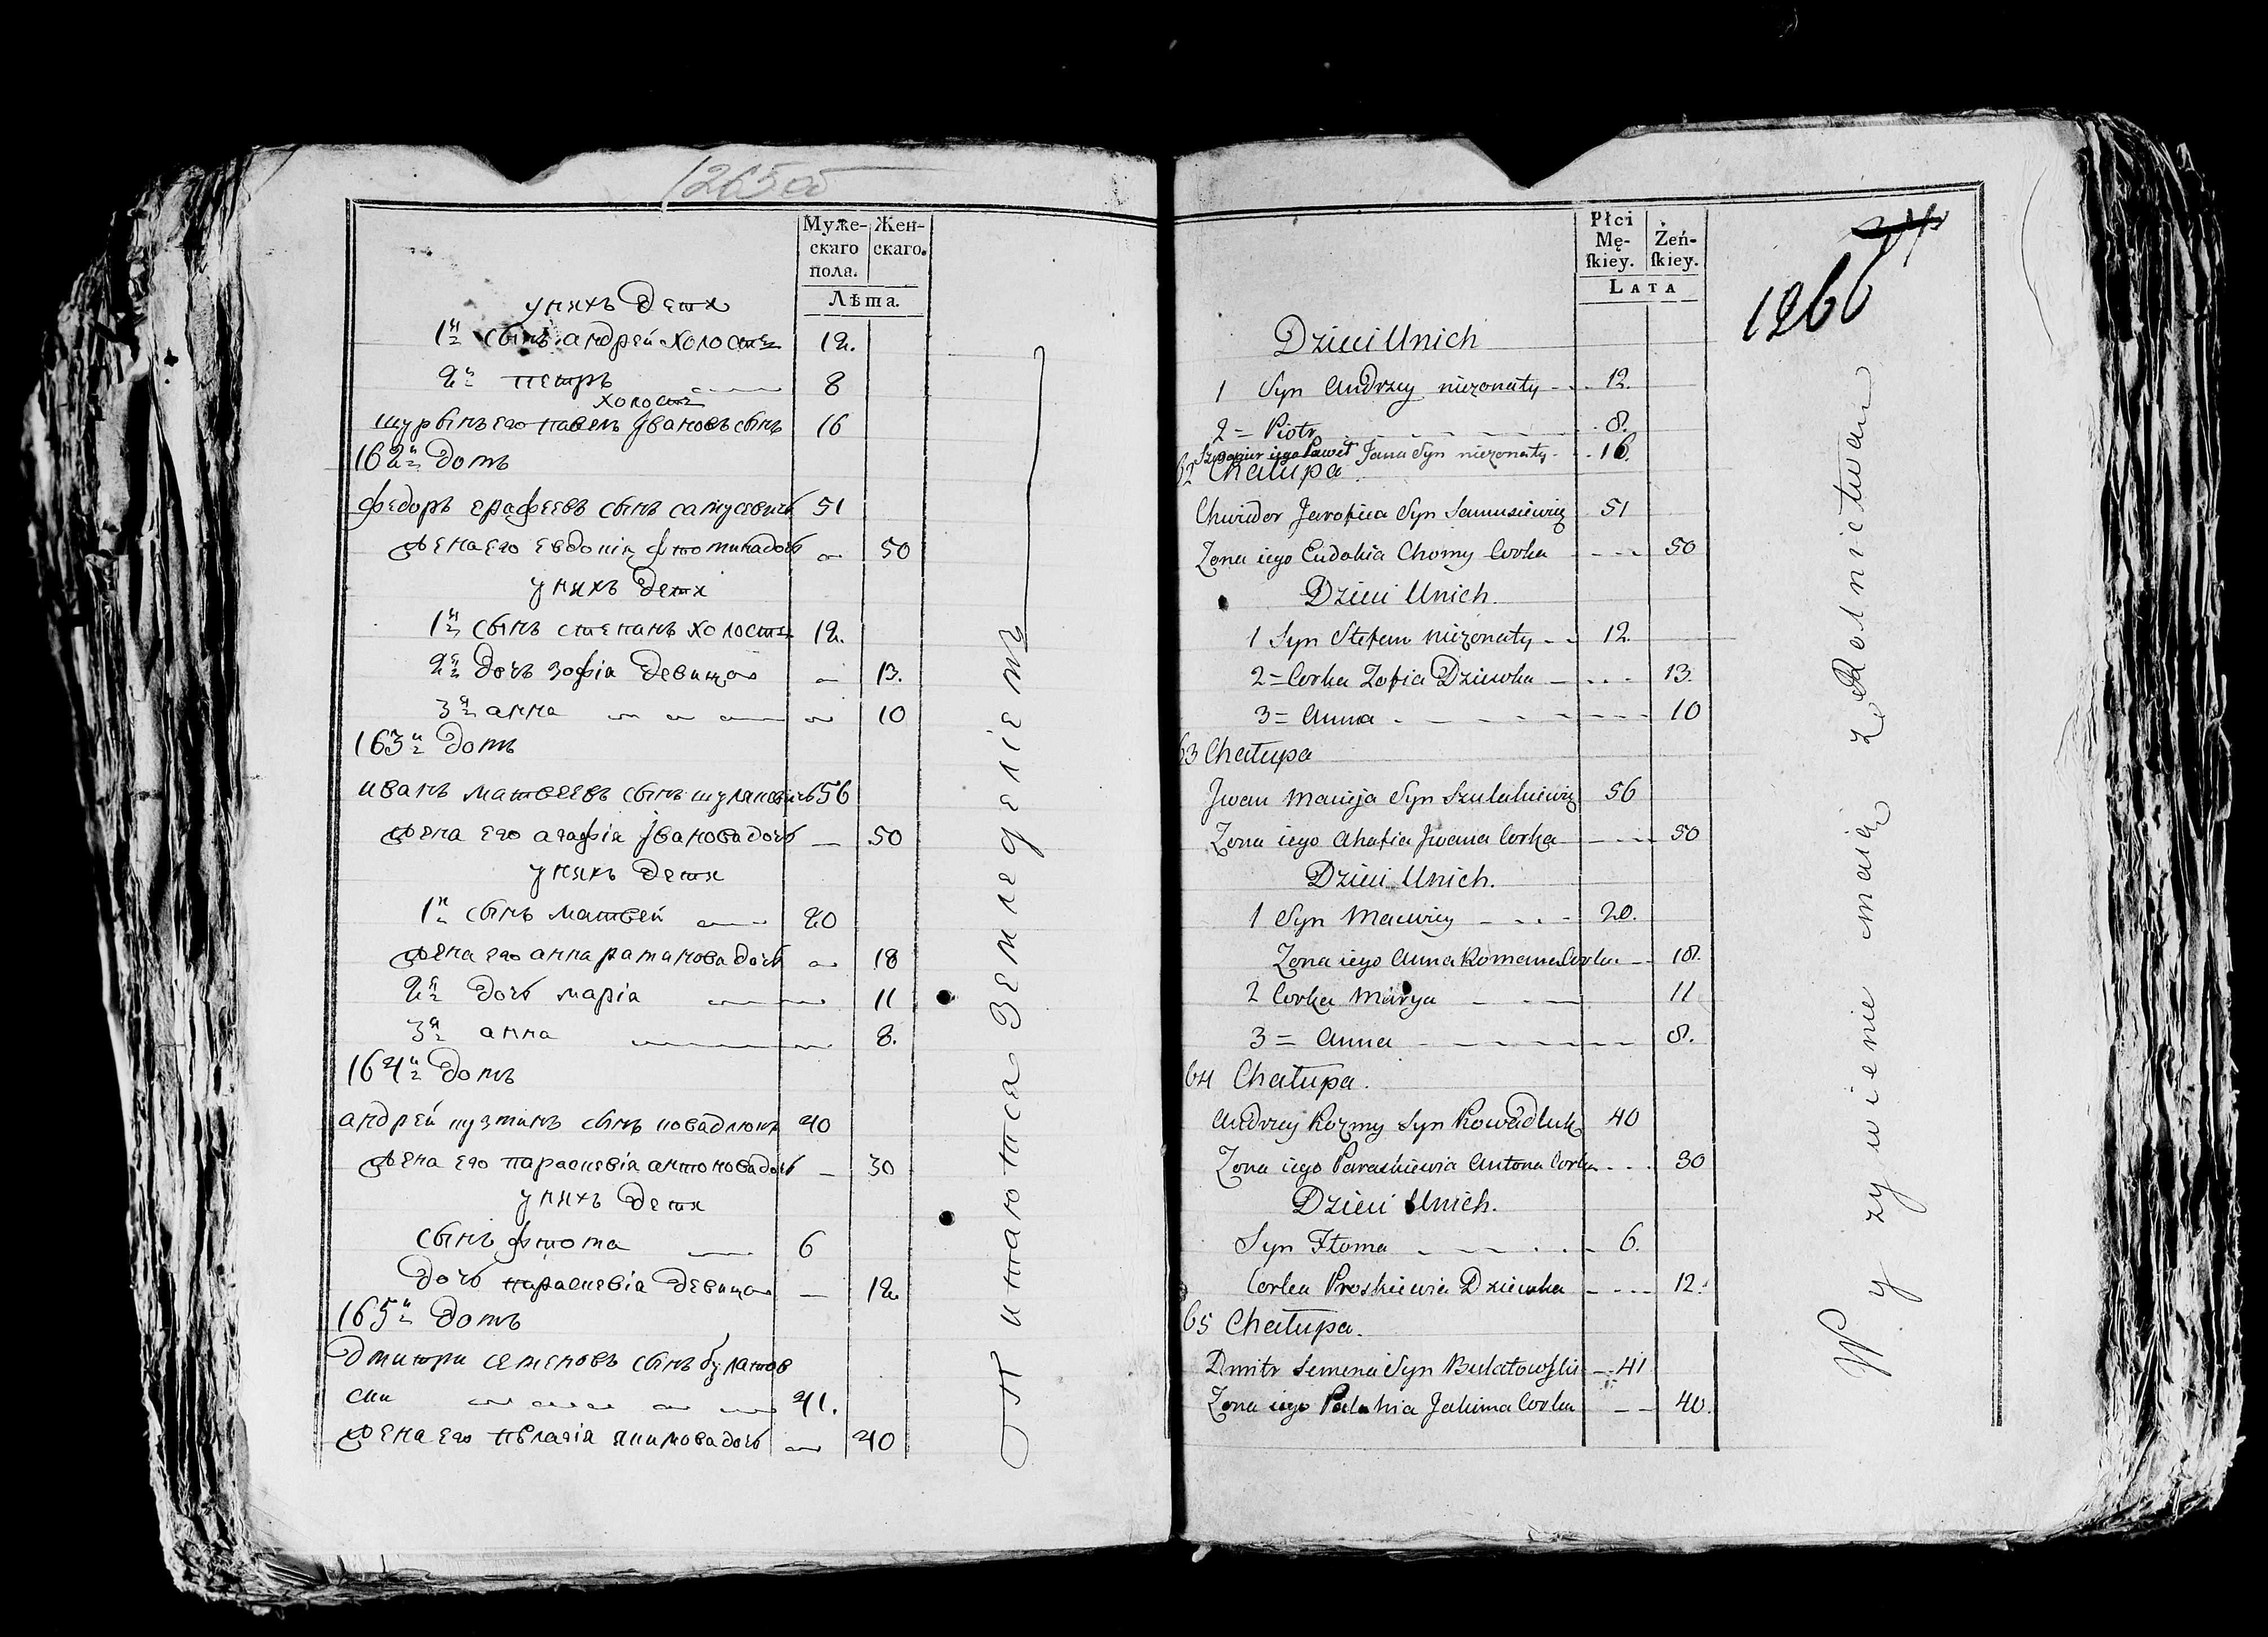 1265об
Муже-
скаго
пола.
Жен-
скаго.
Лѣта.
у нихъ дети
1й сынъ андрей холостъ 12.
2й петръ 8
холостъ
шурынъ его павелъ Ивановъ сынъ 16
162й домъ
федоръ ерафеевъ сынъ самусевичъ 51
жена его евдокия фтомина дочь 50
у нихъ дети
1й сынъ степанъ холостъ 12.
2я дочь зофія девица 13.
3я анна 10
163й домъ
иванъ матвеевъ сынъ шулякевичъ 56
жена его агафія Іванова дочь 50
у нихъ дети
1й сынъ матвей 20
жена его анна раманова дочь 18
2я дочь марія 11
3я анна 8.
164й домъ
андрей кузминъ сынъ ковадлюкъ 40
жена его параскевія антонова дочь 30
у нихъ дети
сынъ фтома 6
дочь параскевія девица 12
165й домъ
дмитри семеновъ сынъ булатов
ски 41.
жена его пелагія якимова дочь 40
Питаются Земледеліемъ
Płci
Mę-
skiey.
Żeń-
skiey.
LATA
1266
Dzieci Unich
1 Syn Andrzey niezonaty 12.
2 = Piotr 8.
Szwagier iego Paweł Jana Syn niezonaty 16.
62 Chałupa.
Chwiedor Jarofieia Syn Samusiewicz 51
Zona iego Eudokia Chomy Corka 50
Dzieci Unich.
1 Syn Stefan niezonaty 12.
2 = Corka Zofia Dziewka 13.
3 = Anna 10
63 Chałupa
Jwan Macieja Syn Szulakiewicz 56
Zona iego Ahafia Jwana Corka 50
Dzieci Unich.
1 Syn Maciey 20.
Zona iego Anna Romana Corka 18.
2 Corka Marya 11
3 = Anna 8.
64 Chałupa.
Andrzey Kozmy Syn Kowadluk 40
Zona iego Paraskiewia Antona Corka 30
Dzieci Unich.
Syn Ftoma 6.
Corka Proskiewia Dziewka 12.
65 Chałupa.
Dmitr Semena Syn Bulatowski 41
Zona iego Palahia Jakima Corka 40.
Wyzywienie maią z Rolnictwa